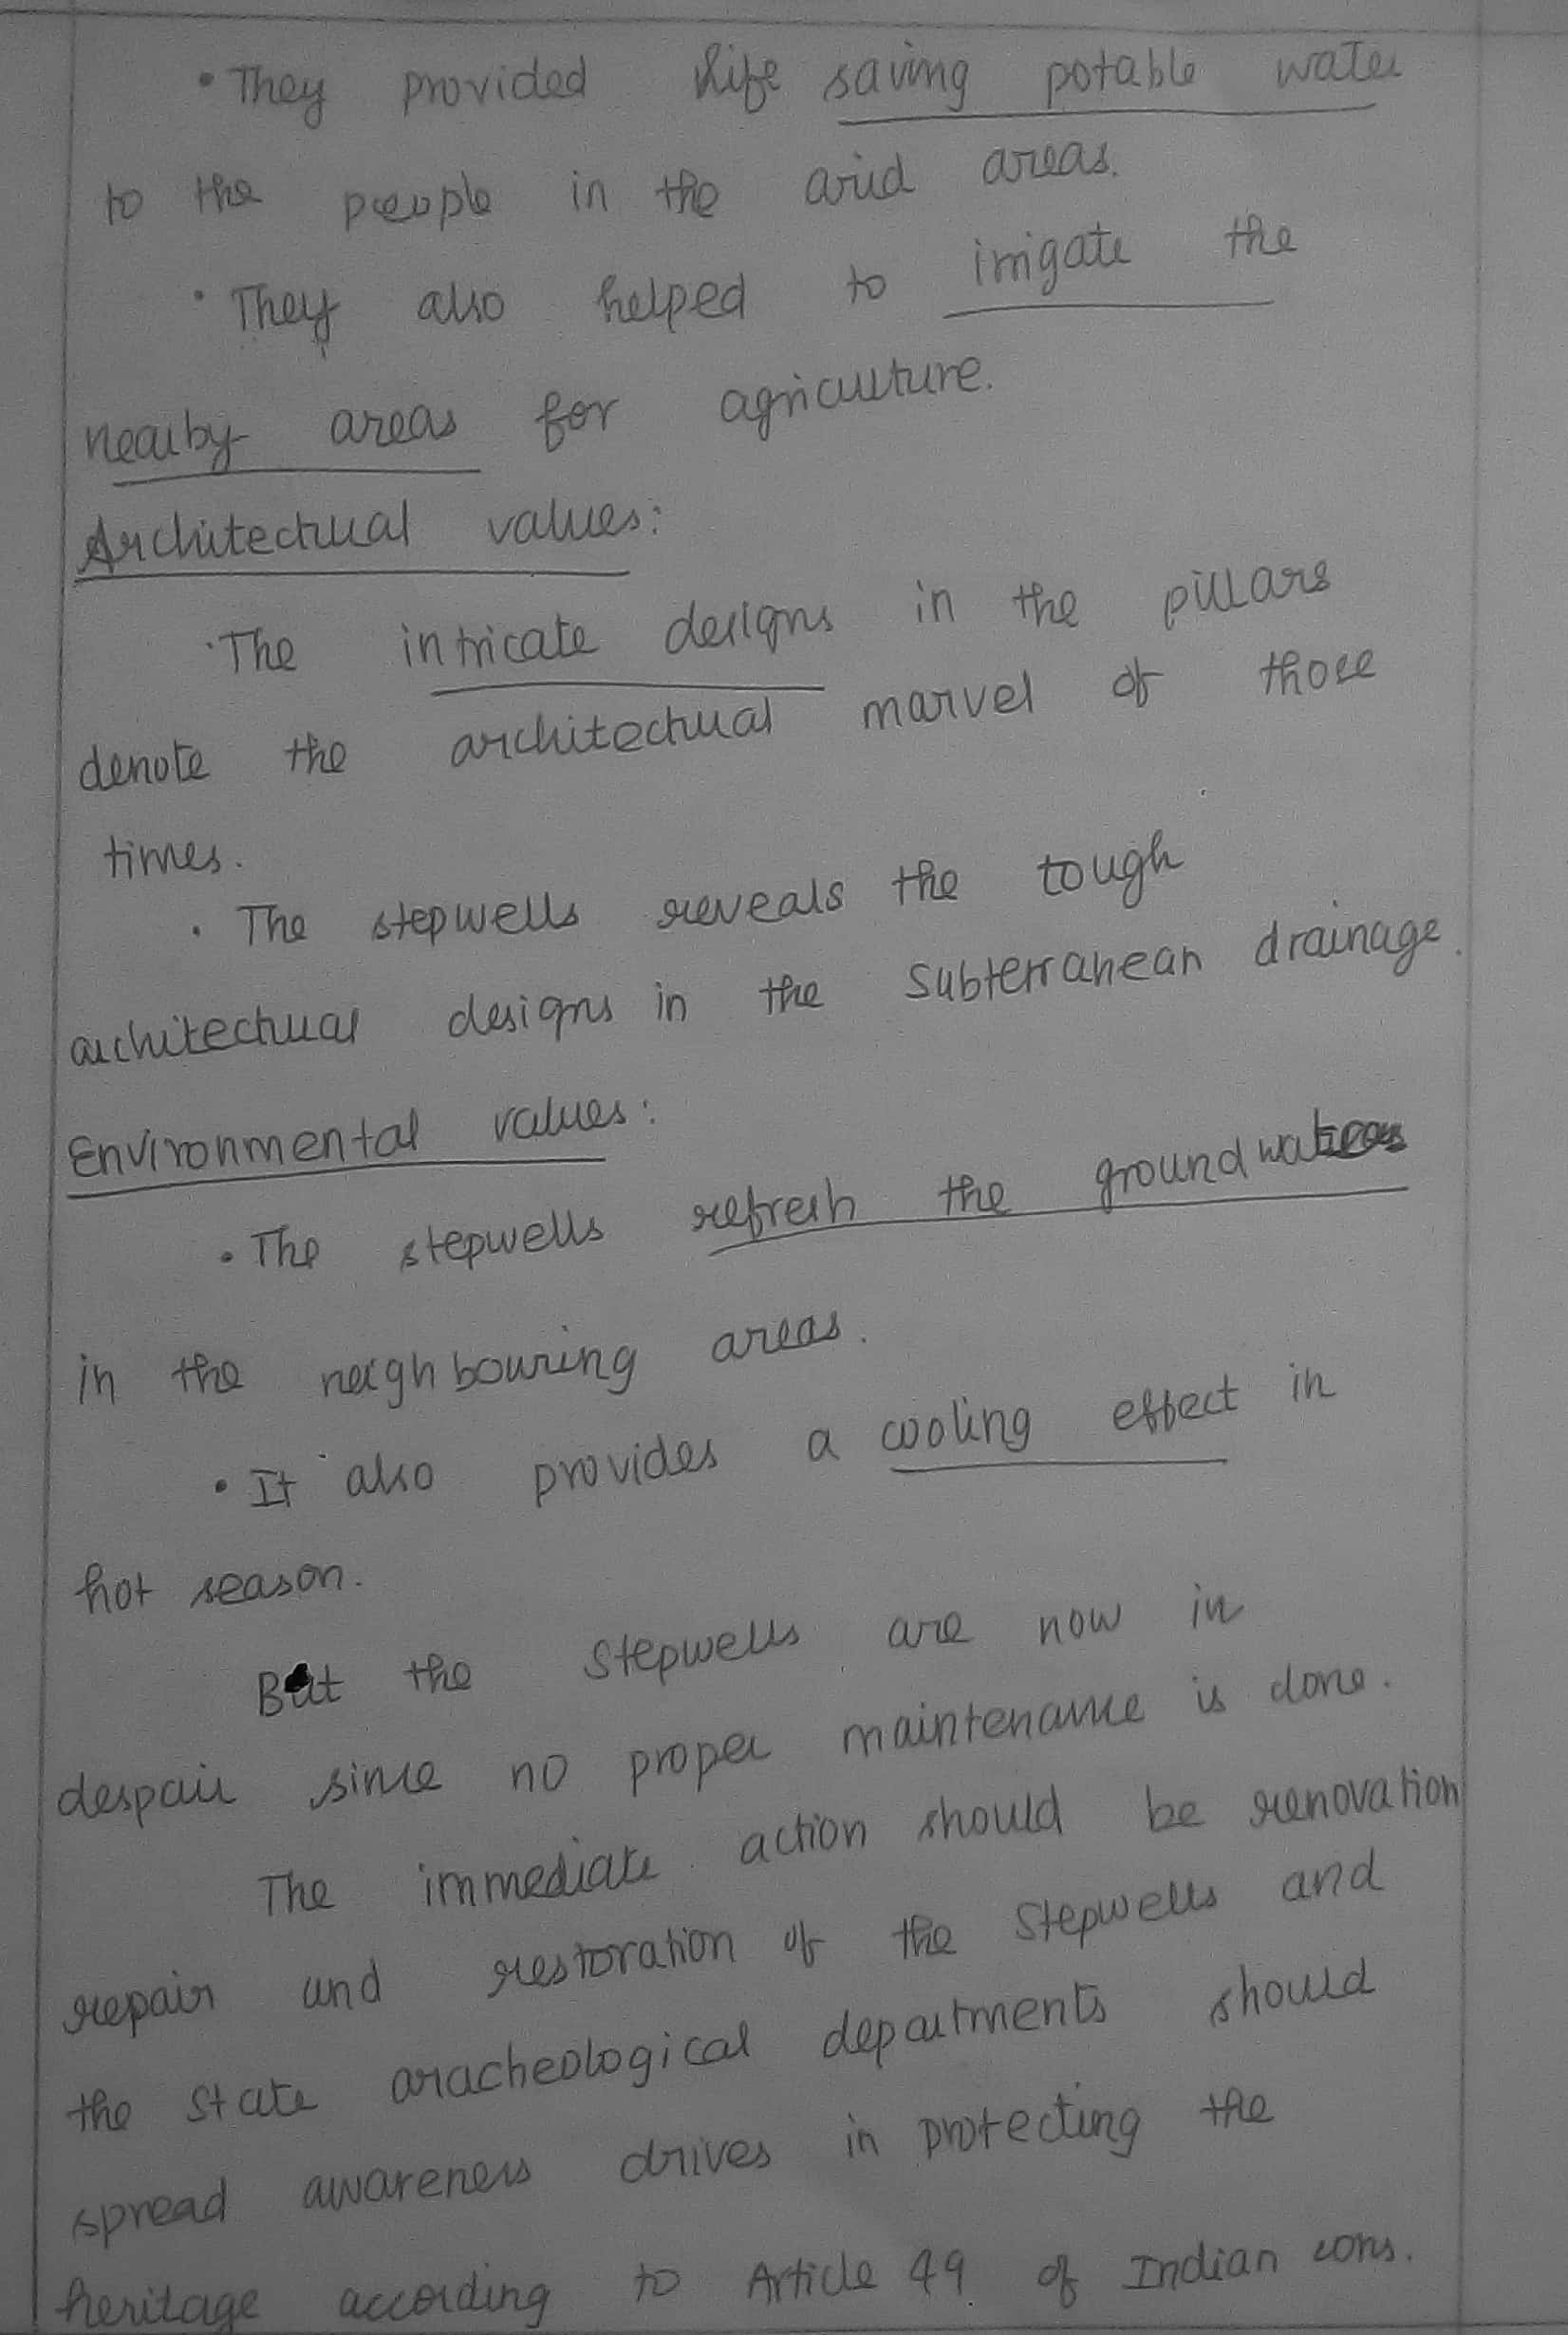 • They provided life saving potable water
to the people in the arid areas.
• They also helped to irrigate the
nearby areas for agriculture.
Architectural values:
• The intricate designs in the pillars
denote the architectural marvel of those
times.
• The stepwells reveals the tough
architectural designs in the subterranean drainage.
Environmental values:
• The stepwells refresh the groundwater
in the neighbouring areas.
• It also provides a cooling effect in
hot season.
But the stepwells are now in
despair since no proper maintenance is done.
The immediate action should be renovation
repair and restoration of the stepwells and
the state aracheological departments should
spread awareness drives in protecting the
heritage according to Article 49 of Indian cons.